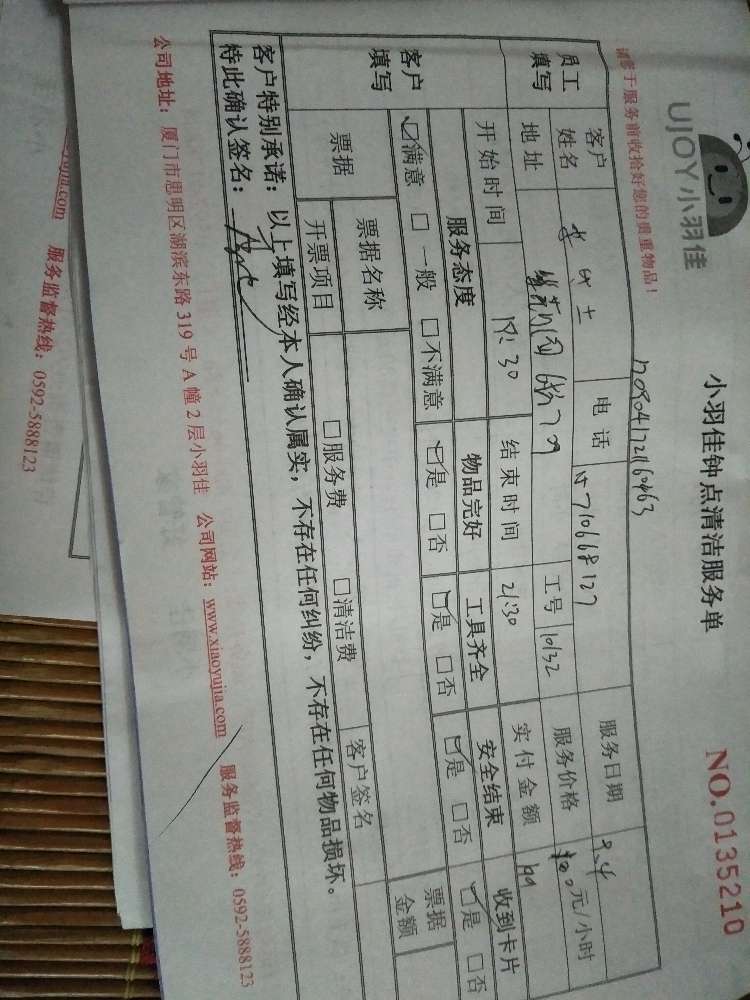 UJOY小羽佳
小羽佳钟点清洁服务单
NO.0135210
请您于服务前收拾好您的贵重物品！
员工填写
客户姓名
李女士
电话
15710668127
服务日期
9.4
地址
6栋709
工号
10132
服务价格
元/小时
开始时间
18:30
结束时间
21:30
实付金额
客户填写
服务态度
物品完好
工具齐全
安全结束
收到卡片
☑满意 □一般 □不满意
☑是 □否
☑是 □否
☑是 □否
☑是 □否
票据
票据名称
客户签名
票据金额
开票项目
□服务费 □清洁费
客户特别承诺：以上填写经本人确认属实，不存在任何纠纷，不存在任何物品损坏。
特此确认签名：
公司地址：厦门市思明区湖滨东路319号A幢2层小羽佳 公司网站：www.xiaoyujia.com 服务监督热线：0592-5888123
yujia.com 服务监督热线：0592-5888123